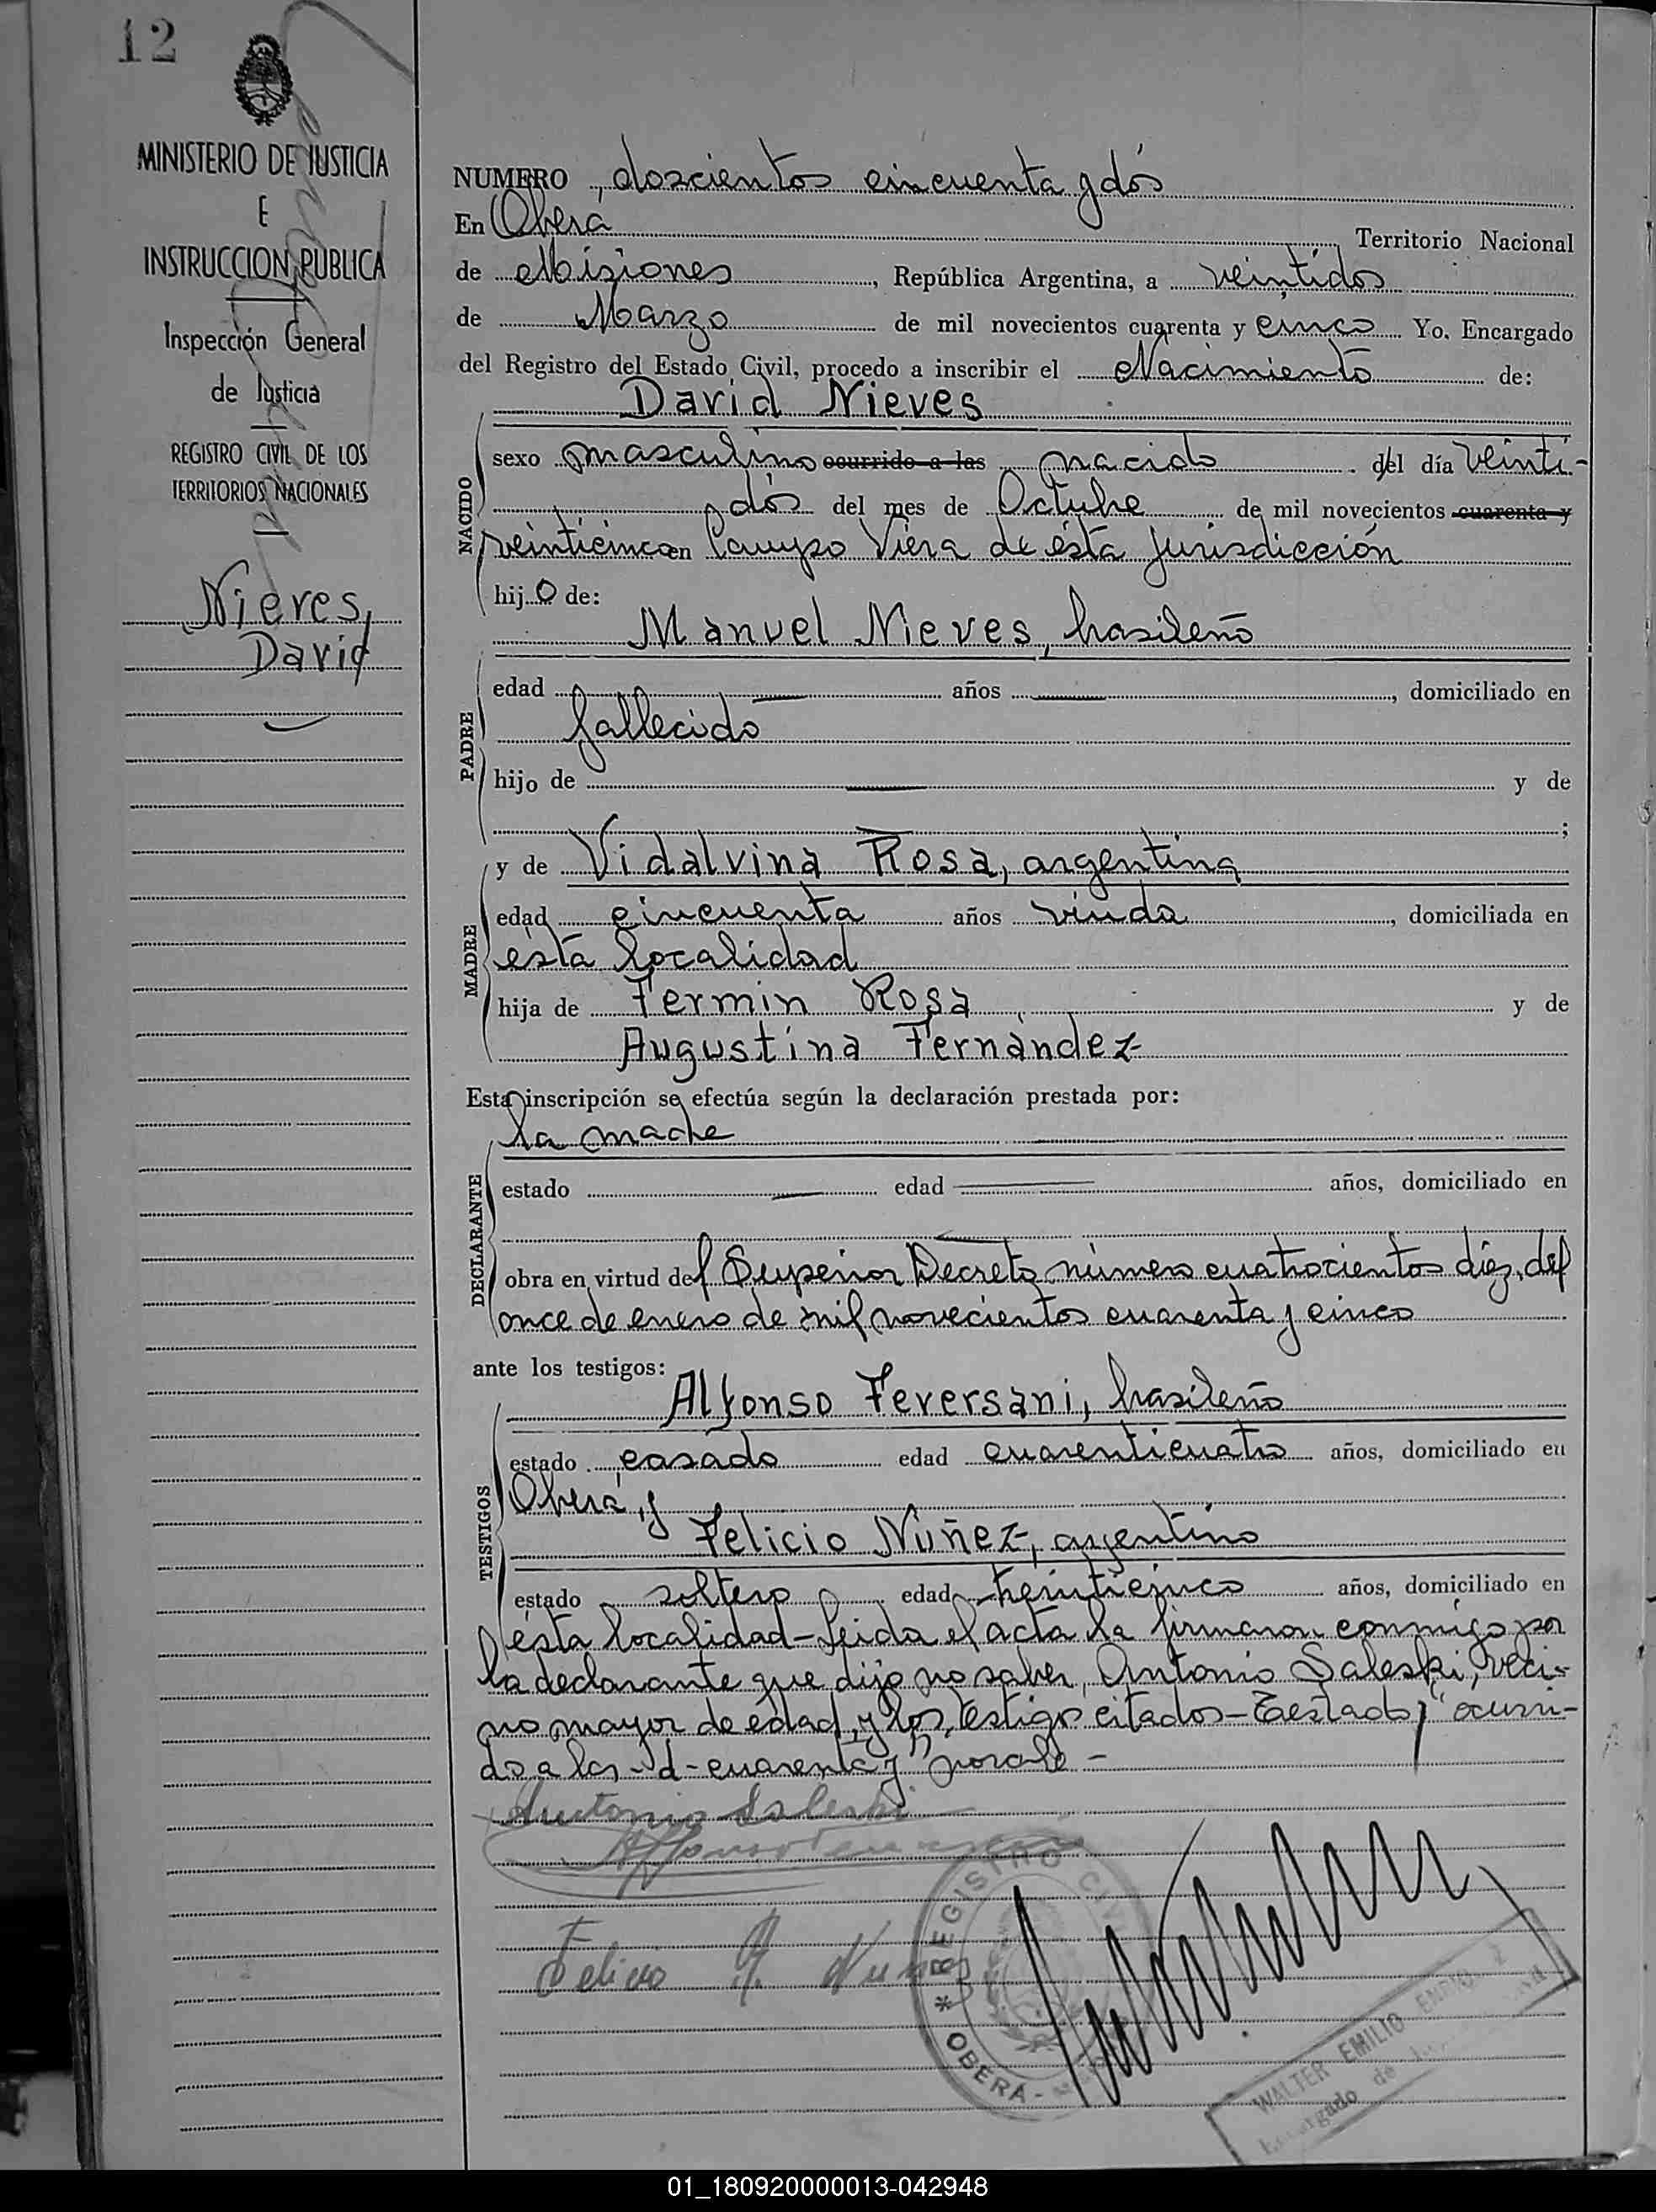 12
MINISTERIO DE JUSTICIA
E
INSTRUCCION PUBLICA
Inspección General
de Justicia
REGISTRO CIVIL DE LOS
TERRITORIOS NACIONALES
Nieves,
David
NUMERO, doscientos cincuenta y dós
En Oberá Territorio Nacional
de Misiones, República Argentina, a veintidos
de Marzo de mil novecientos cuarenta y cinco Yo, Encargado
del Registro del Estado Civil, procedo a inscribir el Nacimiento de:
David Nieves
NACIDO
sexo masculino ocurrido a las nacido del día veinti-
dós del mes de Octubre de mil novecientos cuarenta y
veinticinco en Campo Viera de ésta jurisdicción
hijo de:
Manuel Nieves, brasileño
PADRE
edad — años —, domiciliado en
fallecido
hijo de — y de
;
y de Vidalvina Rosa, argentina
MADRE
edad cincuenta años viuda, domiciliada en
ésta localidad
hija de Fermin Rosa y de
Augustina Fernàndez
Esta inscripción se efectúa según la declaración prestada por:
la madre
DECLARANTE
estado — edad — años, domiciliado en
obra en virtud del Superior Decreto número cuatrocientos diéz, del
once de enero de mil novecientos cuarenta y cinco
ante los testigos:
Alfonso Feversani, brasileño
TESTIGOS
estado casado edad cuarenticuatro años, domiciliado en
Oberá y
Felicio Nuñez, argentino
estado soltero edad treinticinco años, domiciliado en
ésta localidad - Leida el acta la firmaron conmigo por
la declarante que dijo no saber, Antonio Saleski, veci-
no mayor de edad, y los testigos citados - Testado: "ocurri-
do a las - d - cuarenta y" no vale -
Antonio Saleski
Felicio Nuñez
* REGISTRO CIVIL
OBERÁ -
WALTER EMILIO
Encargado de
01_180920000013-042948